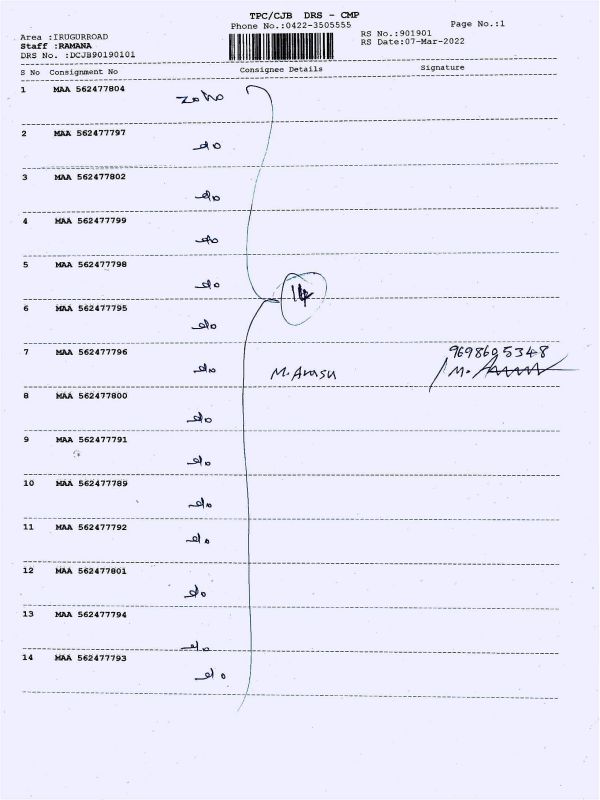 TPC/CJB DRS - CMP
Phone No.:0422-3505555
Page No.:1
Area :IRUGURROAD
Staff :RAMANA
DRS No. :DCJB90190101
RS No.:901901
RS Date:07-Mar-2022
S No Consignment No Consignee Details Signature
1 MAA 562477804 Zoho
2 MAA 562477797 do
3 MAA 562477802 do
4 MAA 562477799 do
5 MAA 562477798 do
14
6 MAA 562477795 do
7 MAA 562477796 do M. Arasu 9698695348
M.
8 MAA 562477800 do
9 MAA 562477791 do
10 MAA 562477789 do
11 MAA 562477792 do
12 MAA 562477801 do
13 MAA 562477794 do
14 MAA 562477793 do